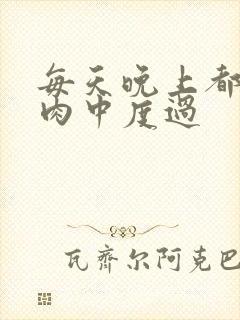 每天晚上都
肉中度過
瓦齊尔阿克巴